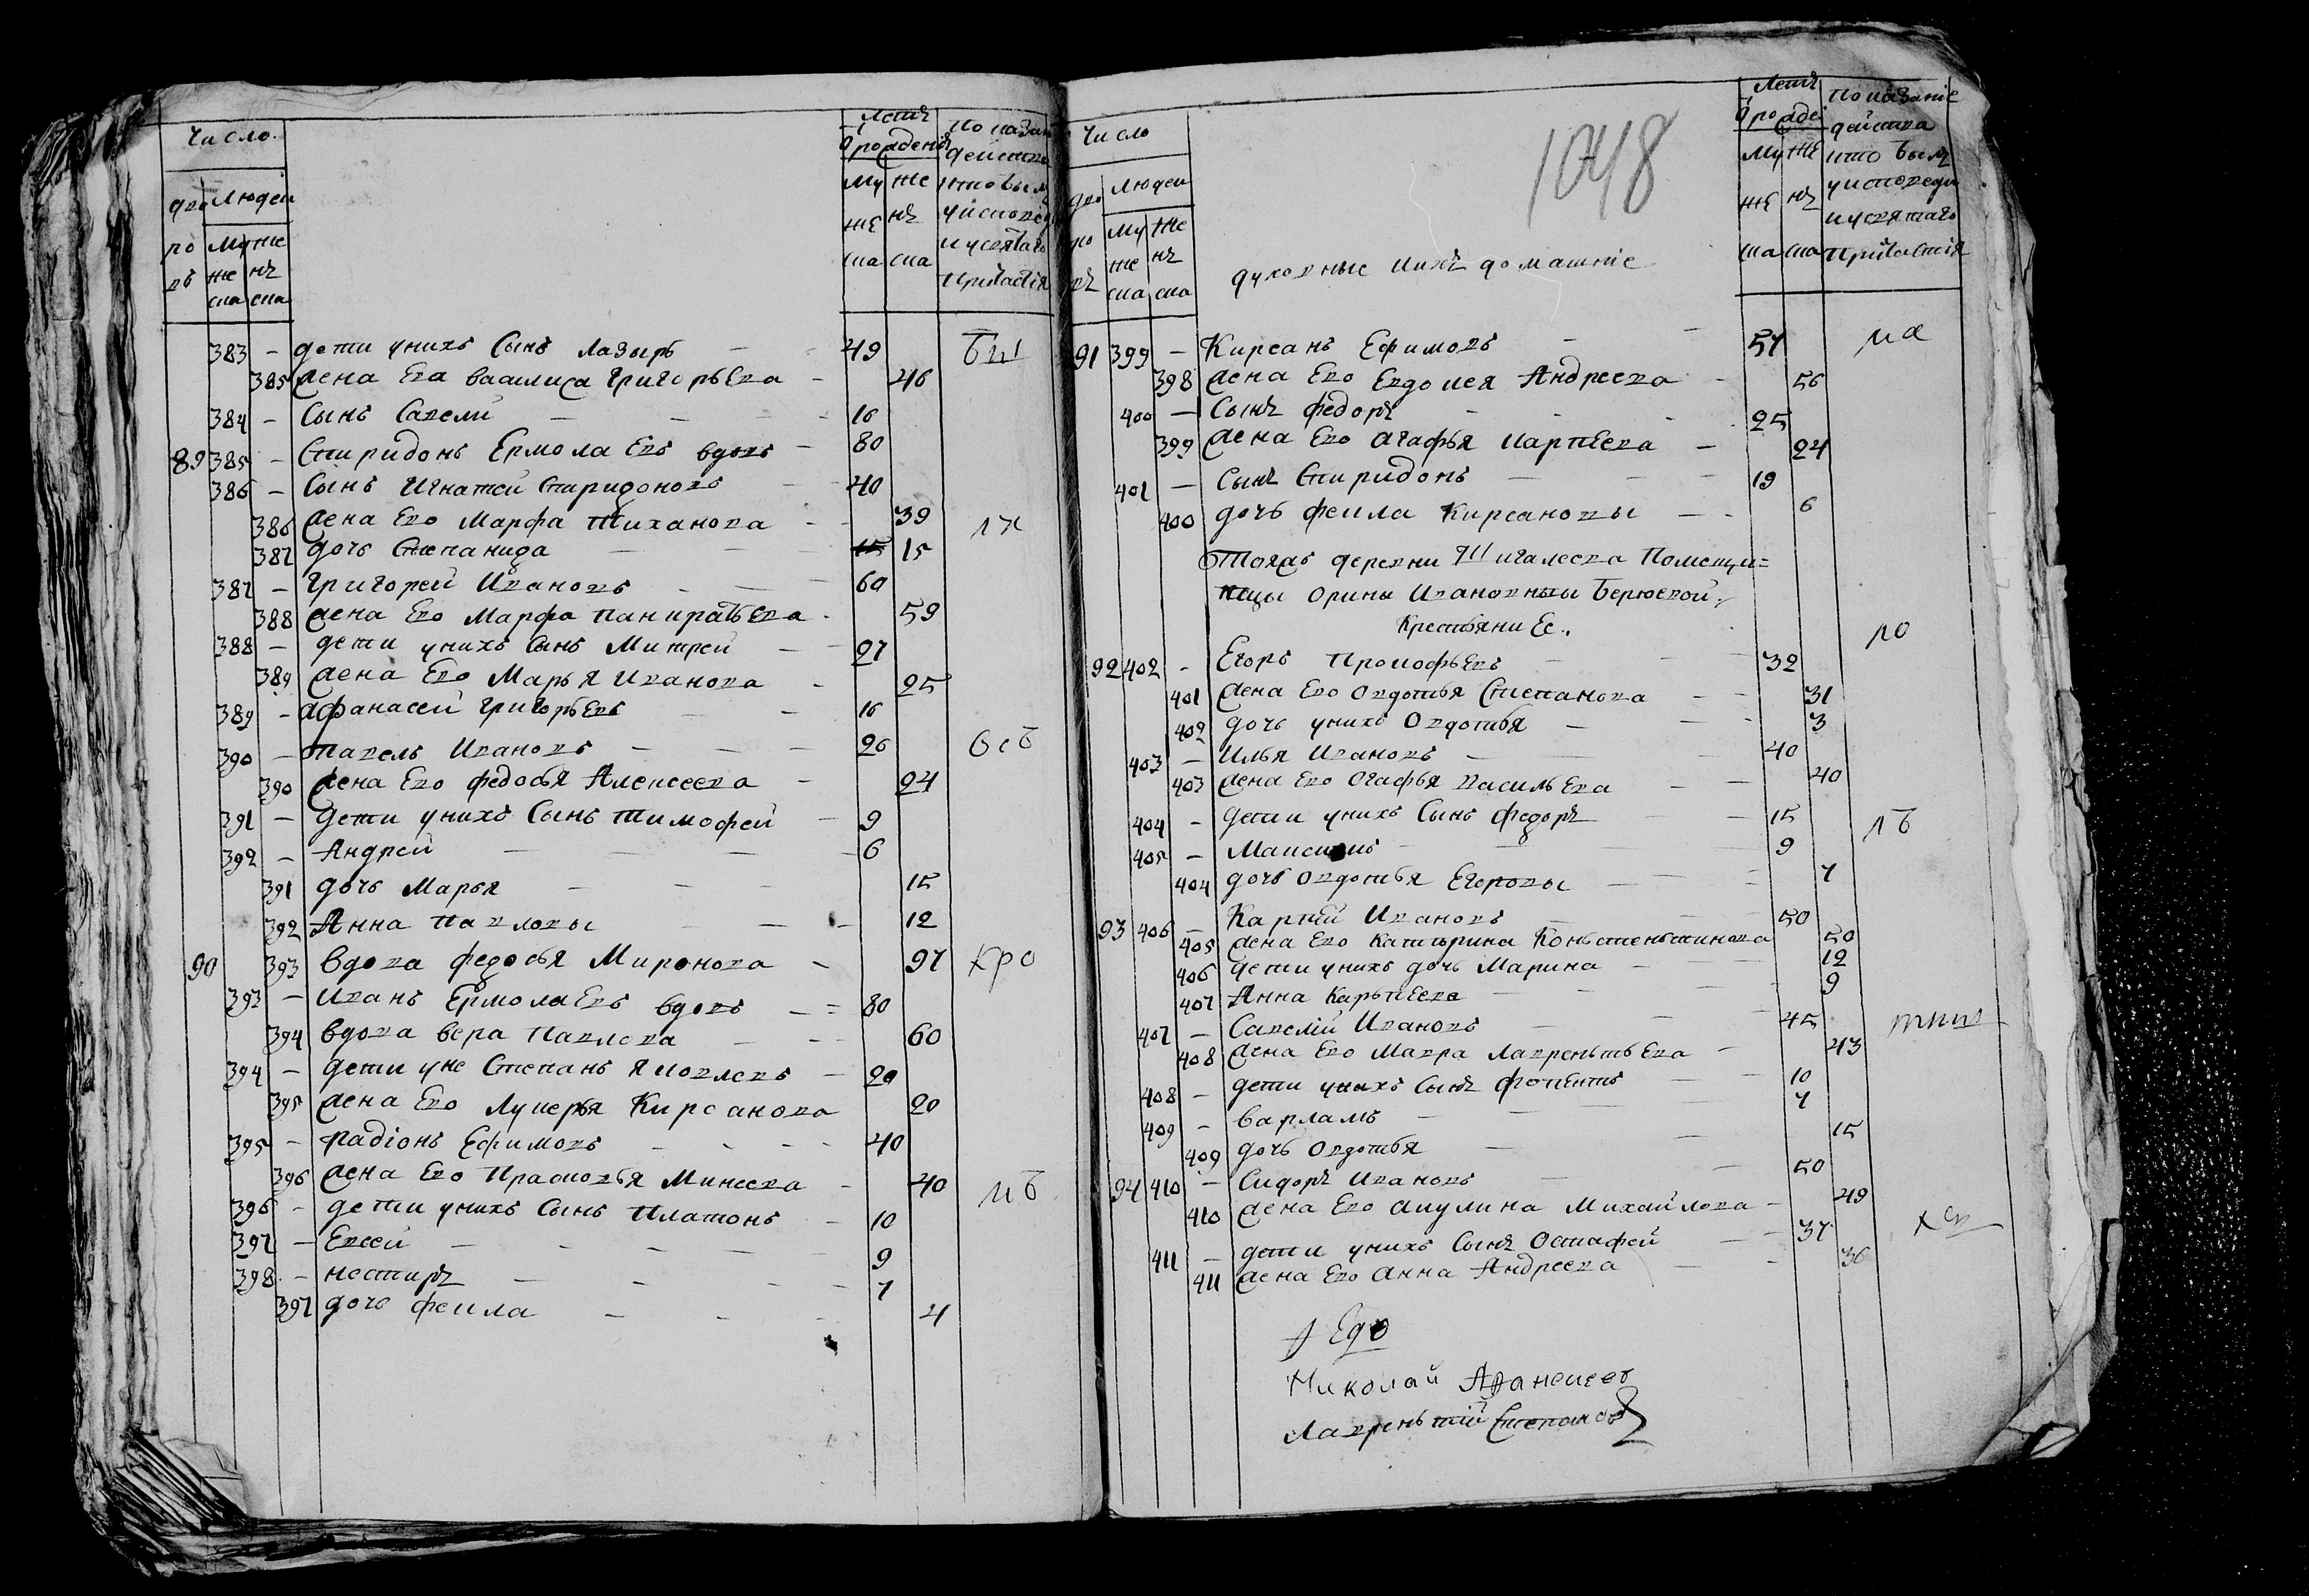 Число.
Летъ от рождения
Показан
действа
дво
ровъ
Людеи
мужеска
женска
мужеска
женска
кто былъ
у исповед
и у святаго
причастия
383 – дети у нихъ Сынъ Лазырь – 49
385 жена Ева василиса григорьева – 46
384 – Сынъ Савели – 16
89 385 – Спиридонъ Ермолаевъ вдовъ – 80
386 – Сынъ Игнатеи Спиридоновъ – 40
386 жена Ево Марфа Тиханова – 39
387 дочь Степанида – 15 15
387 – григореи Ивановъ – 60
388 жена Ево Марфа Панкратьева – 59
388 – дети у нихъ Сынъ Митреи – 27
389 жена Ево Марья Иванова – 25
389 – афанасеи григорьевъ – 16
390 – павелъ Ивановъ – 26
390 жена Ево федосья Алексеева – 24
391 – дети у нихъ Сынъ тимофеи – 9
392 – Андреи – 6
391 дочь Марья – 15
392 Анна Павловы – 12
90 393 вдова федосья Миронова – 97
393 – Иванъ Ермолаевъ вдовъ – 80
394 вдова вера Павлова – 60
394 – дети у не Степанъ Яковлевъ – 20
395 жена Ево Лукерья Кирсанова 20
395 – Радіонъ Ефимовъ – 40
396 жена Ево Прасковья Минеева – 40
396 – дети у нихъ Сынъ Платонъ – 10
397 – Евсеи – 9
398 – нестиръ – 7
397 дочь фекла – 4
Число
дво
ровъ
Людеи
мужеска
женска
1048
духовные и ихъ домашніе
Летъ от рожде
мужеска
женска
Показаніе
действа
кто былъ
у исповеди
и у святаго
причастія
91 399 – Кирсанъ Ефимовъ – 57
398 жена Ево Евдокея Андреева – 56
400 – Сынъ федоръ – 25
399 жена Ево агафья Карпеева – 24
401 – Сынъ Спиридонъ – 19
400 дочь фекла Кирсановы – 6
Тояжъ деревни Шигалеева Помещи=
цы Орины Ивановны Берюевой
Крестьяни Ее.,
92 402 – Егоръ Прокофьевъ – 32
401 жена Ево овдотья Степанова – 31
402 дочь у нихъ Овдотья – 3
403 – Илья Ивановъ – 40
403 жена Ево Огафья Васильева – 40
404 – дети у нихъ Сынъ федоръ – 15
405 – Максимъ – 9
404 дочь овдотья Егоровы – 7
93 406 – Карпъи Ивановъ – 50
405 жена Ево Катырина Коньстеньтинова 50
406 дети у нихъ дочь Марина – 12
407 Анна Карьпеева – 9
407 – Савелій Ивановъ – 45
408 жена Ево Мавра Лавреньтьева – 43
408 – дети у нихъ Сынъ фотентъ – 10
409 – варламъ – 7
409 дочь Овдотья – 15
94 410 – Сидоръ Ивановъ – 50
410 жена Ево акулина Михайлова – 49
411 – дети у нихъ Сынъ Остафей – 37
411 жена Ево Анна Андреева – 36
Николай
Лавреньтій Степановъ